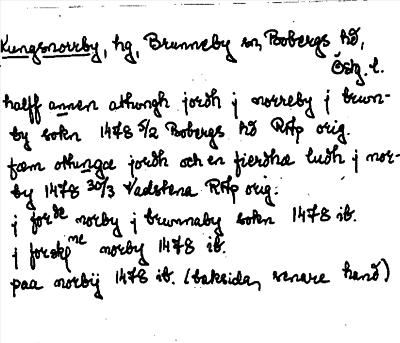 Kungsnorrby, hg, Brunneby sn, Bobergs hd,
Östg. l.
halff annen athongh jordh j norreby j brwn-
by sokn 1478 5/2 Bobergs hd RAp orig.
fæm othunga jordh och en fierdha ludh j nor-
by 1478 30/3 Vadstena RAp orig.
j forde norby j brwnnaby sokn 1478 ib.
j forskne norby 1478 ib.
paa norbij 1478 ib. (baksida, senare hand)